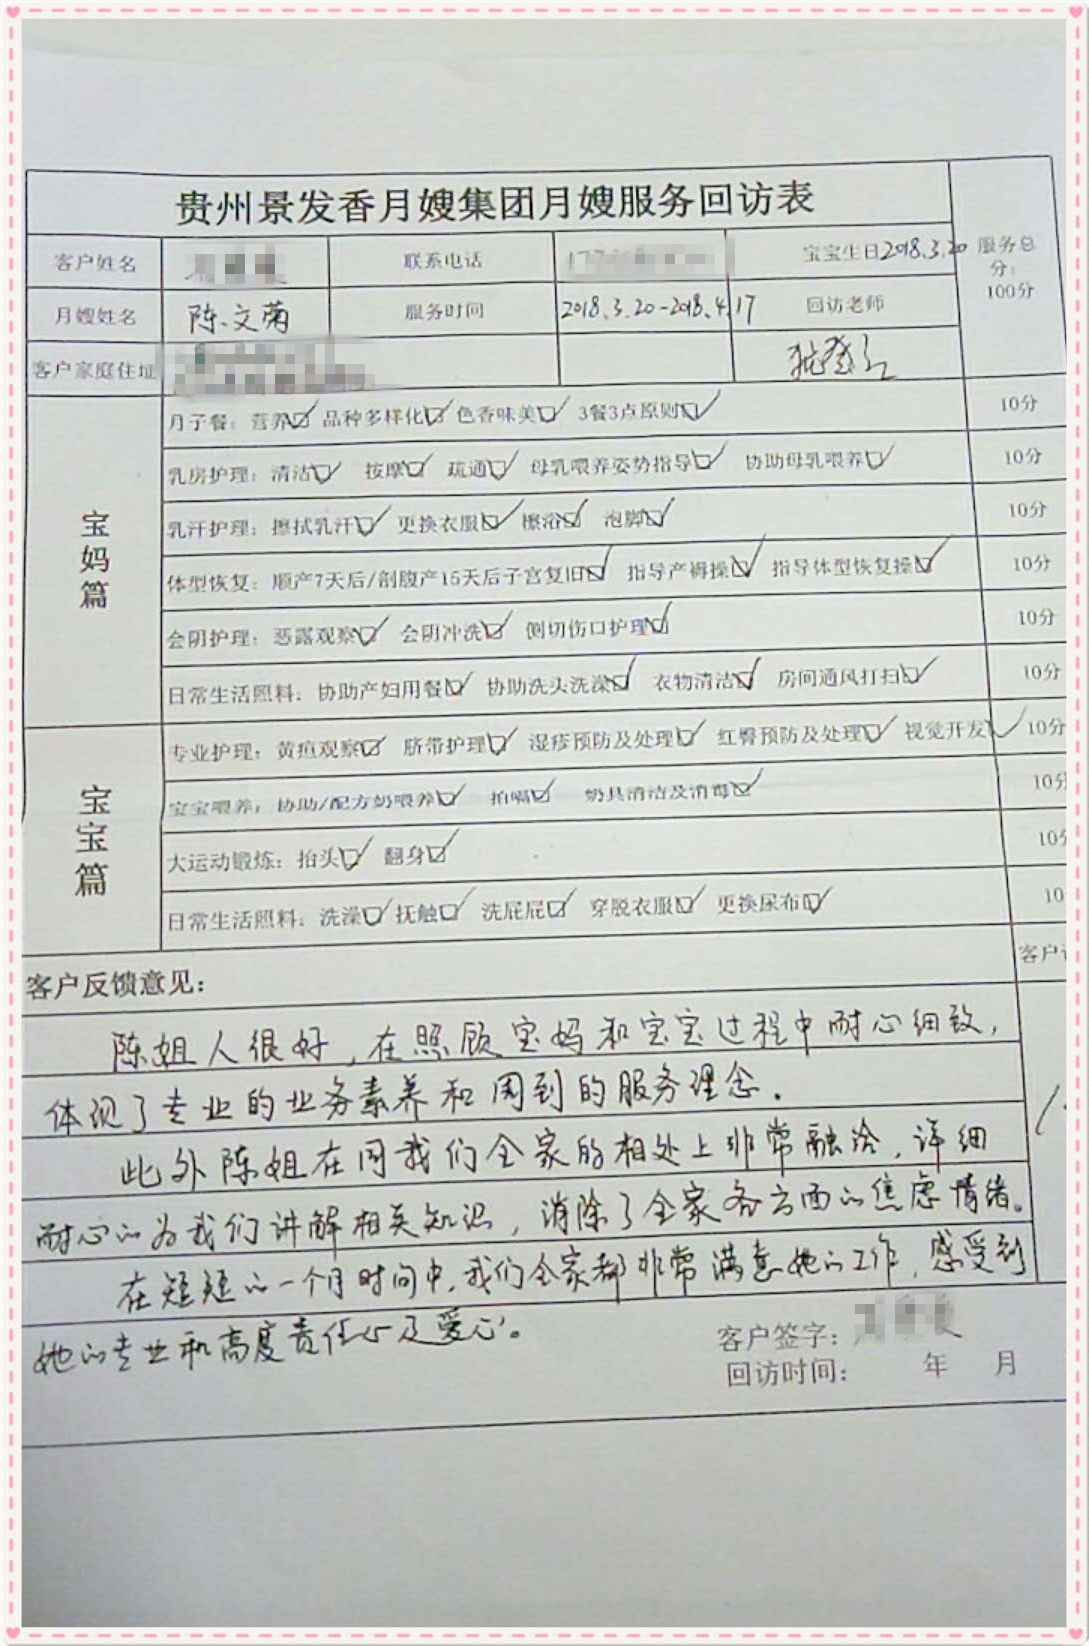 贵州景发香月嫂集团月嫂服务回访表
客户姓名 联系电话 宝宝生日2018.3.20 服务总分：100分
月嫂姓名 陈文菊 服务时间 2018.3.20-2018.4.17 回访老师
客户家庭住址
宝妈篇
月子餐：营养 品种多样化 色香味美 3餐3点原则 10分
乳房护理：清洁 按摩 疏通 母乳喂养姿势指导 协助母乳喂养 10分
乳汗护理：擦拭乳汗 更换衣服 擦浴 泡脚 10分
体型恢复：顺产7天后/剖腹产15天后子宫复旧 指导产褥操 指导体型恢复操 10分
会阴护理：恶露观察 会阴冲洗 侧切伤口护理 10分
日常生活照料：协助产妇用餐 协助洗头洗澡 衣物清洁 房间通风打扫 10分
宝宝篇
专业护理：黄疸观察 脐带护理 湿疹预防及处理 红臀预防及处理 视觉开发 10分
宝宝喂养：协助/配方奶喂养 拍嗝 奶具清洁及消毒 10分
大运动锻炼：抬头 翻身 10分
日常生活照料：洗澡 抚触 洗屁屁 穿脱衣服 更换尿布 10
客户反馈意见： 客户
陈姐人很好，在照顾宝妈和宝宝过程中耐心细致，
体现了专业的业务素养和周到的服务理念。
此外陈姐在同我们全家的相处上非常融洽，详细
耐心的为我们讲解相关知识，消除了全家各方面的焦虑情绪。
在短短的一个月时间中，我们全家都非常满意她的工作，感受到
她的专业和高度责任心及爱心。
客户签字：
回访时间： 年 月